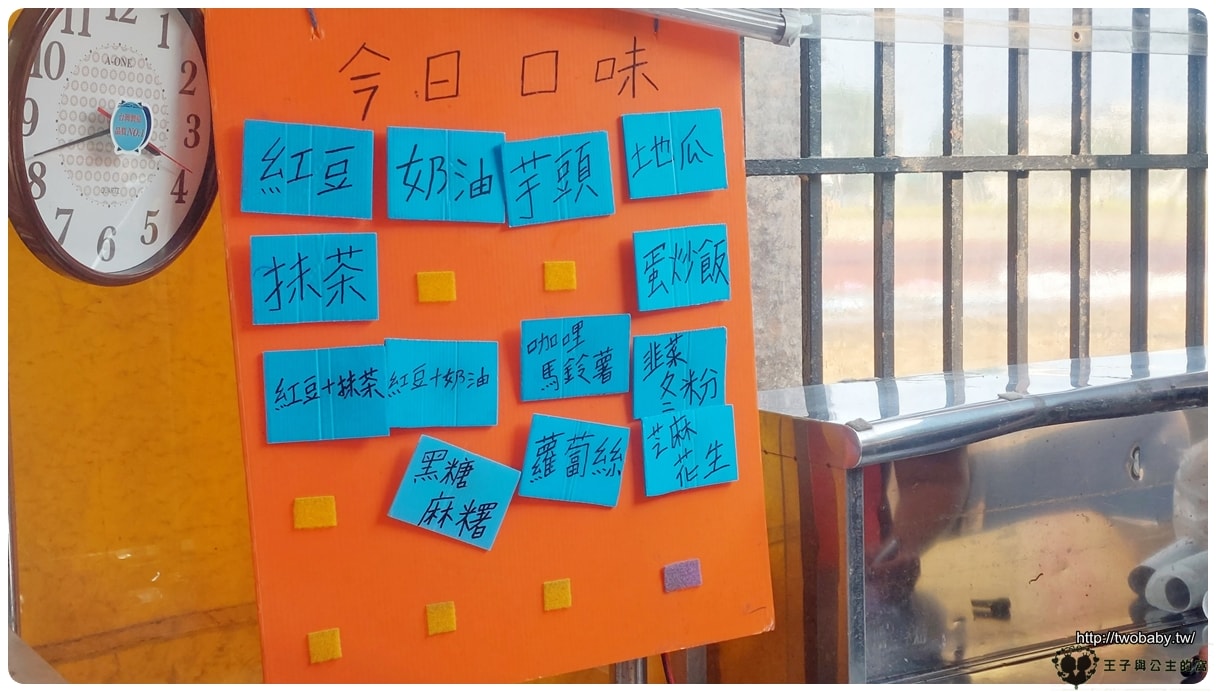 今日口味
紅豆
奶油
芋頭
地瓜
抹茶
蛋炒飯
紅豆+抹茶
紅豆+奶油
咖哩
馬鈴薯
韭菜
冬粉
黑糖
麻糬
蘿蔔絲
芝麻
花生
12
11
1
10
2
9
3
8
4
7
5
6
A-ONE
QUARTZ
http://twobaby.tw/
王子與公主的窩